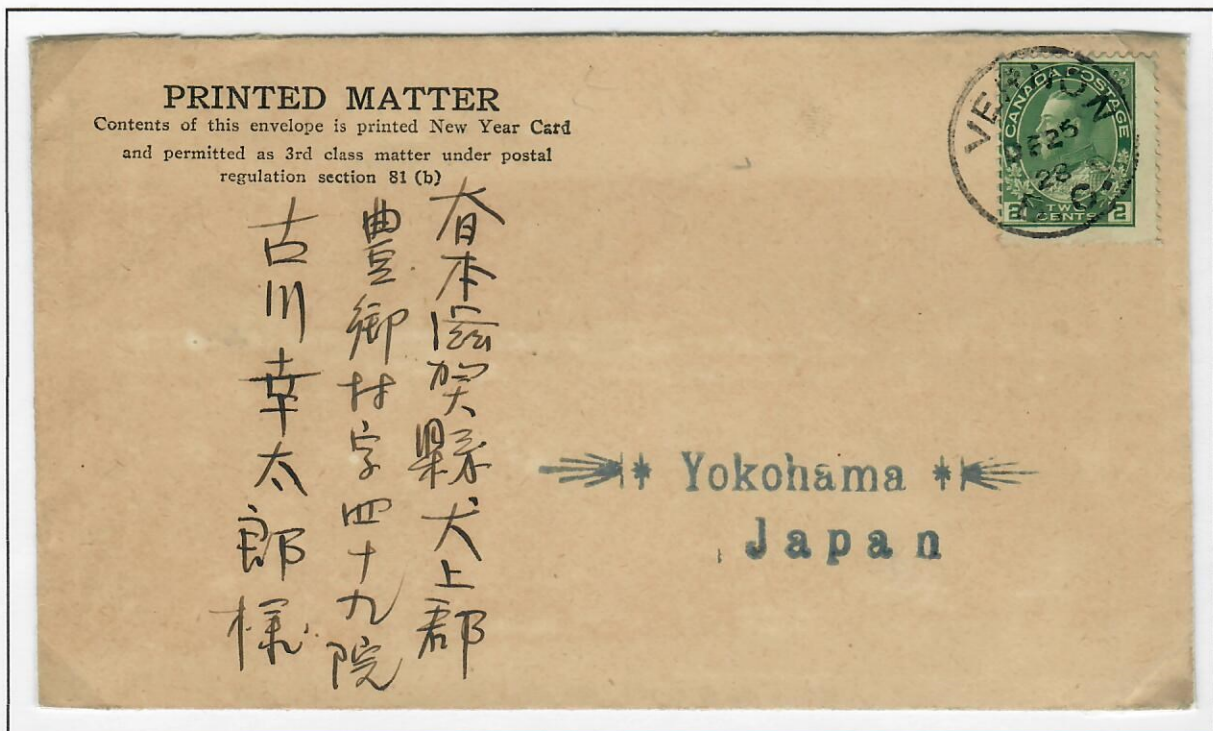 PRINTED MATTER
Contents of this envelope is printed New Year Card
and permitted as 3rd class matter under postal
regulation section 81 (b)
CANADA POSTAGE
2 TWO CENTS 2
VERNON
DE 25
28
日本滋賀縣犬上郡
豊郷村字四十九院
古川幸太郎様
Yokohama
Japan